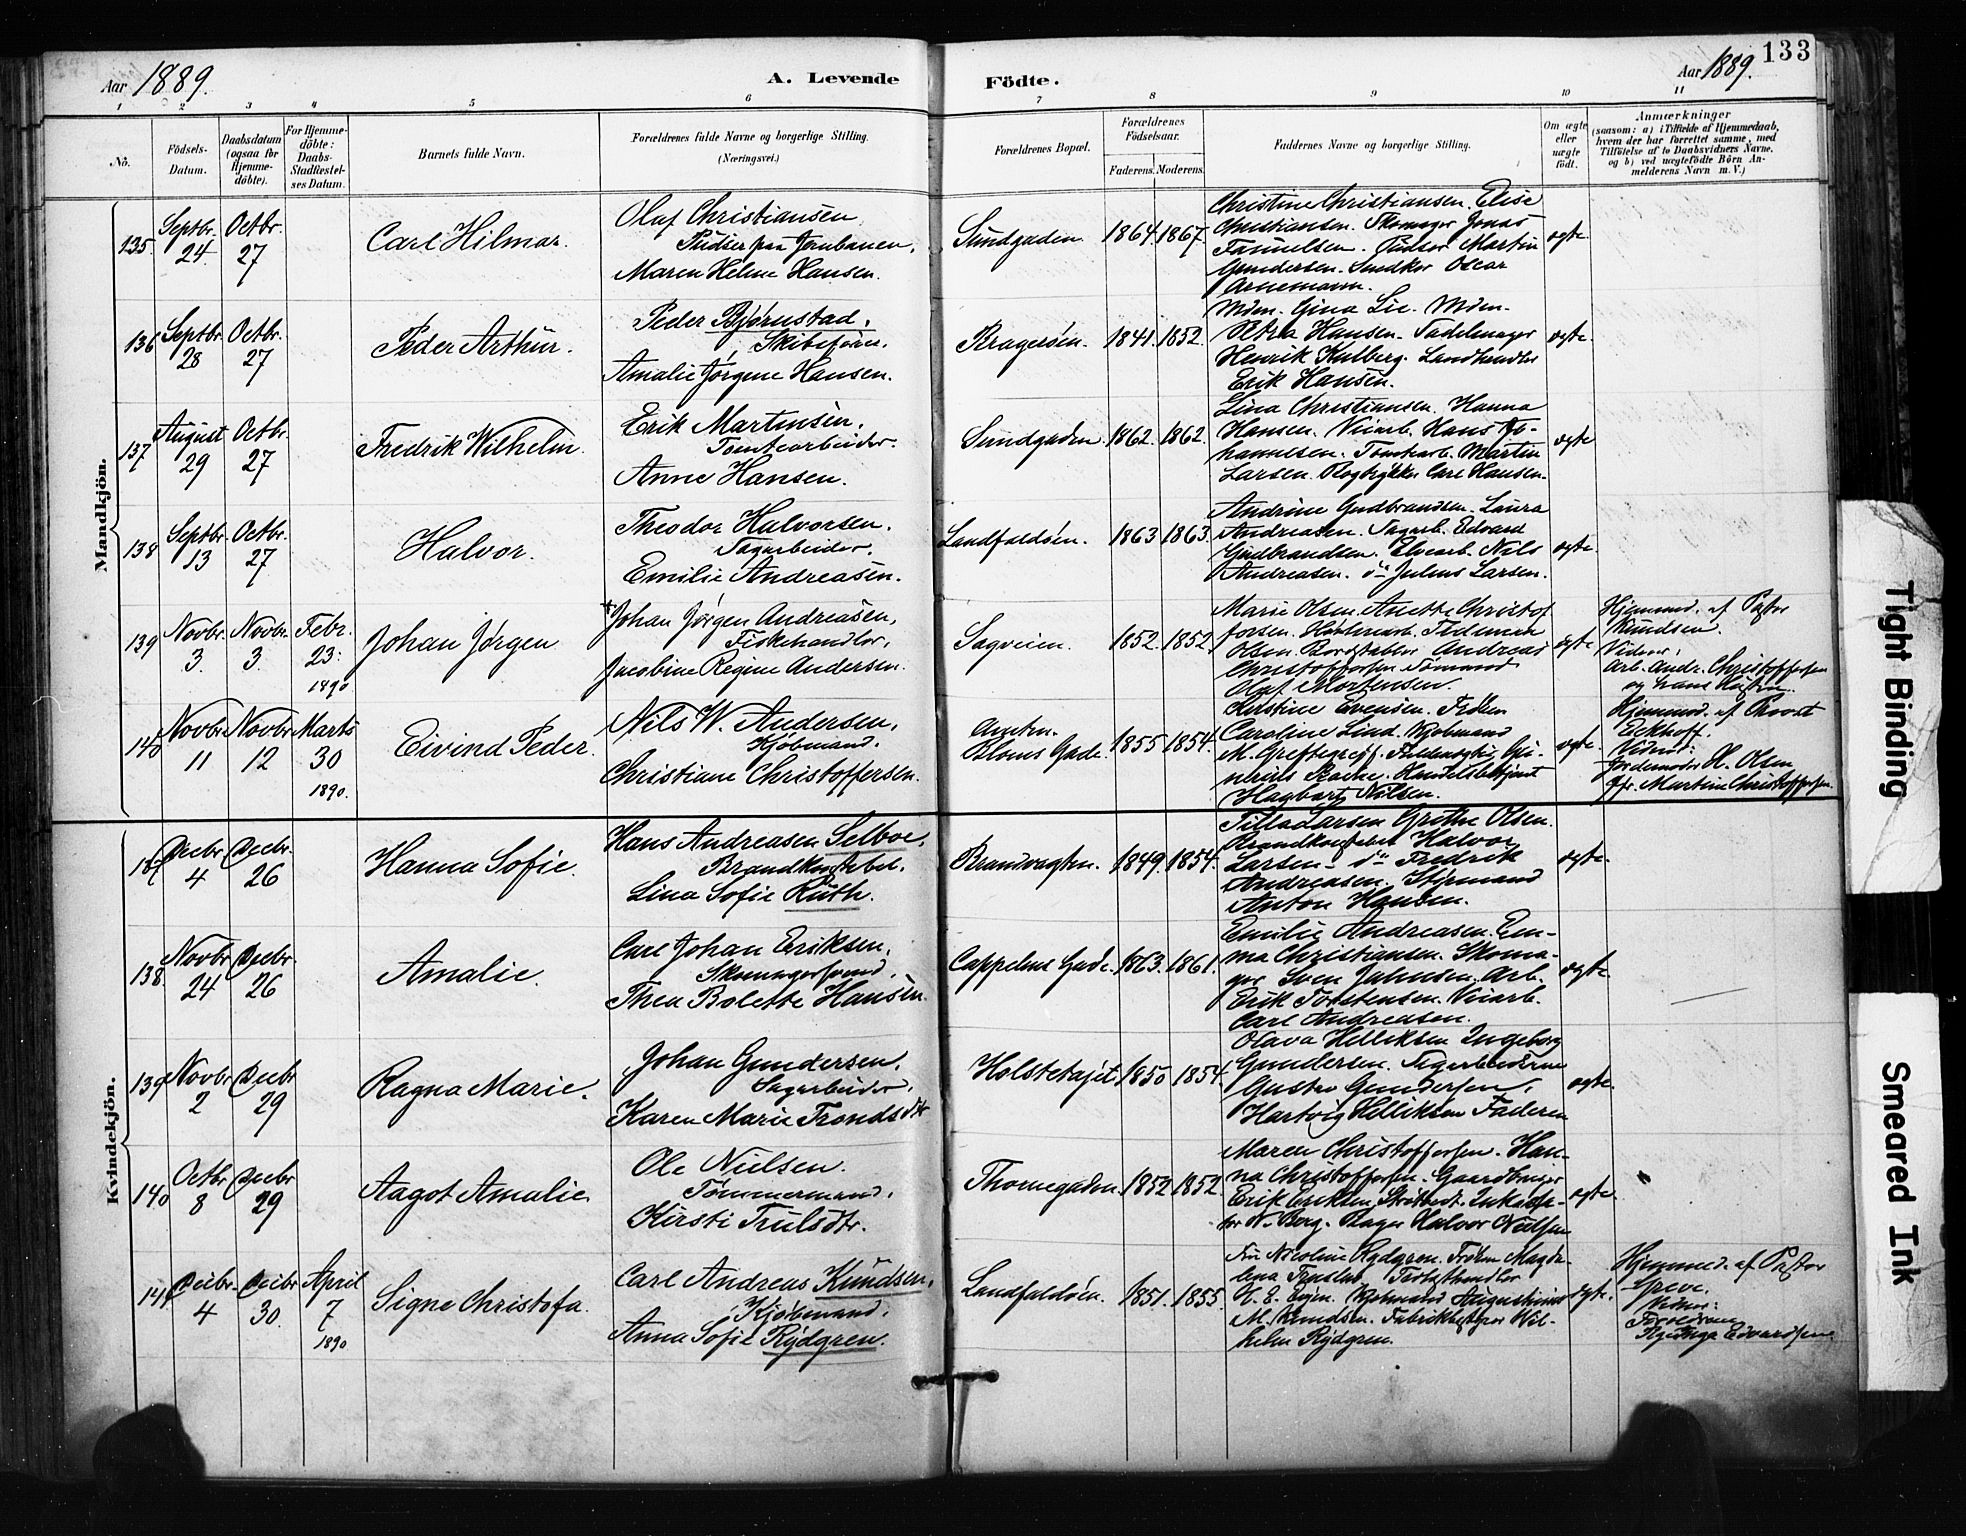 Aar 1889.
A. Levende
Födte.
Aar 1889.
133
1 2 3 4 5 6 7 8 9 10 11
No.
Födsels-
Datum.
Daabsdatum
(ogsaa for
Hjemme-
döbte).
For Hjemme-
döbte:
Daabs-
Stadfæstel-
ses Datum.
Barnets fulde Navn.
Forældrenes fulde Navne og borgerlige Stilling.
(Næringsvei.)
Forældrenes Bopæl.
Forældrenes
Födselsaar.
Faderens. Moderens.
Faddernes Navne og borgerlige Stilling.
Om ægte
eller
uægte
født.
Anmærkninger
(saasom: a) i Tilfælde af Hjemmedaab,
hvem der har forrettet samme, med
Tilföielse af to Daabsvidners Navne,
og b) ved uægtefödte Börn An-
melderens Navn m. V.)
Mandkjön.
135.
Septbr. 24
Octbr. 27
Carl Hilmar.
Olaf Christiansen
Pudser paa Jernbanen,
Maren Helene Hansen.
Sundgaden
1864. 1867.
Christine Christiansen. Elise
Christiansen. Skomager Jonas
Samuelsen. Pudser Martin
Gundersen. Oscar
Arnemann.
ægte.
136
Septbr. 28
Octbr. 27
Peder Arthur.
Peder Bjørnstad,
Skibsfører.
Amalie Jørgine Hansen.
Bragerøen.
1841. 1852.
Mdm. Gina Lie. Mdm.
Petra Hansen. Sadelmager
Henrik Kulberg. Landhandler
Erik Hansen.
ægte.
137
August 29
Octbr. 27
Fredrik Wilhelm.
Erik Martinsen,
Tomtearbeider.
Anne Hansen.
Sundgaden.
1862. 1862.
Lina Christiansen. Hanna
Hansen. Veiarb. Hans Jo-
hannesen. Tomtearb. Martin
Larsen. Carl Hansen.
ægte
138
Septbr. 13
Octbr. 27
Halvor.
Theodor Halvorsen.
Sagarbeider.
Emilie Andreasen.
Landfaldøen.
1863 1863.
Andrine Gudbrandsen. Laura
Andreasen. Sagarb. Edvard
Gudbrandsen. Elvearb. Nils
Andreasen. do Julius Larsen.
ægte.
139
Novbr. 3
Novbr. 3
Febr. 23.
1890
Johan Jørgen
Johan Jørgen Andreasen,
Fiskehandler,
Jacobine Regine Andersen.
Sagveien.
1852. 1852
Marie Olsen. Anette Christof
fersen. Tideman
Olsen. Andreas
Christoffersen
Olaf Mortensen.
ægte
Hjemmed. af Pastor
Knudsen.
Vidner:
Arb. Andr. Christoffersen
og
140
Novbr. 11
Novbr. 12
Marts 30
1890.
Eivind Peder.
Nils W. Andersen,
Kjøbmand.
Christiane Christoffersen.
Amtm.
Bloms Gade.
1855 1854.
Kirstine Evensen. Frøken
Caroline Lind. Kjøbmand
M. Handelsbetjent
Hagbart Nilsen.
ægte.
Hjemmed. af Provst
Eckhoff.
Vidner:
Jordemoder H. Olsen
Martine Christoffersen.
Kvindekjön.
137
Decbr 4
Decbr. 26
Hanna Sofie.
Hans Andreasen Selboe,
Brandkonstabel.
Lina Sofie Ruth.
Brandvagten.
1849. 1854.
Tilla Larsen Grethe Olsen.
Brandkonstabel Halvor
Larsen. do Fredrik
Andreasen. Styrmand
Anton Hansen.
ægte.
138
Novbr 24
Decbr. 26
Amalie.
Carl Johan Eriksen,
Skomagersvend.
Thea Bolette Hansen.
Cappelens Gade.
1863. 1861.
Emilie Andreasen. Em-
ma Christiansen. Skoma-
ger Sven Jahnsen. Arb.
Erik Torstensen. Veiarb.
Carl Andreasen.
ægte
139
Novbr 2
Decbr 29
Ragna Marie.
Johan Gundersen,
Sagarbeider,
Karen Marie Trondsdtr
Holstetajet.
1850 1854.
Olava Helliksen Ingeborg
Gundersen. Sagarbeiderne
Gustav Gundersen,
Hartvig Helliksen Faderen
ægte.
140
Octbr 8
Decbr 29
Aagot Amalie.
Ole Nielsen.
Tømmermand.
Kirsti Trulsdtr.
Thornegaden.
1852 1852
Maren Christoffersen. Han-
na Christoffersen. Gaardbruger
Erik Eriksen Inkassa-
tor N. Berg. Bager Halvor Nielsen
ægte.
141
Decbr. 4
Decbr 30.
April 7
1890
Signe Christofa.
Carl Andreas Knudsen,
Kjøbmand.
Anna Sofie Rydgren.
Landfaldøen.
1851. 1855.
Fru Nicoline Rydgren. Frøken Magda-
lena
Kjøbmand
M. Knudsen. Wil-
helm Rydgren.
ægte.
Hjemmed. af Pastor
Greve.
Vidner:
Edvardsen
Tight Binding
Smeared Ink